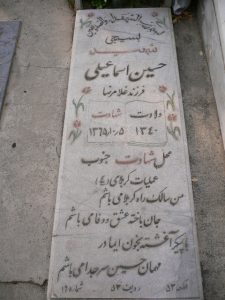 بسیجی
شهید
حسین اسماعیلی
فرزند غلامرضا
ولادت شهادت
۱۳۴۰ ۱۳۶۵/۱۰/۵
محل شهادت جنوب
عملیات کربلای (۴)
من سالک راه کربلا می باشم
جان باخته عشق و وفا می باشم
با پیکر آغشته بخون ایما در
مهمان حسین سر جدا می باشم
قطعه ۵۳ ردیف ۵۳ شماره